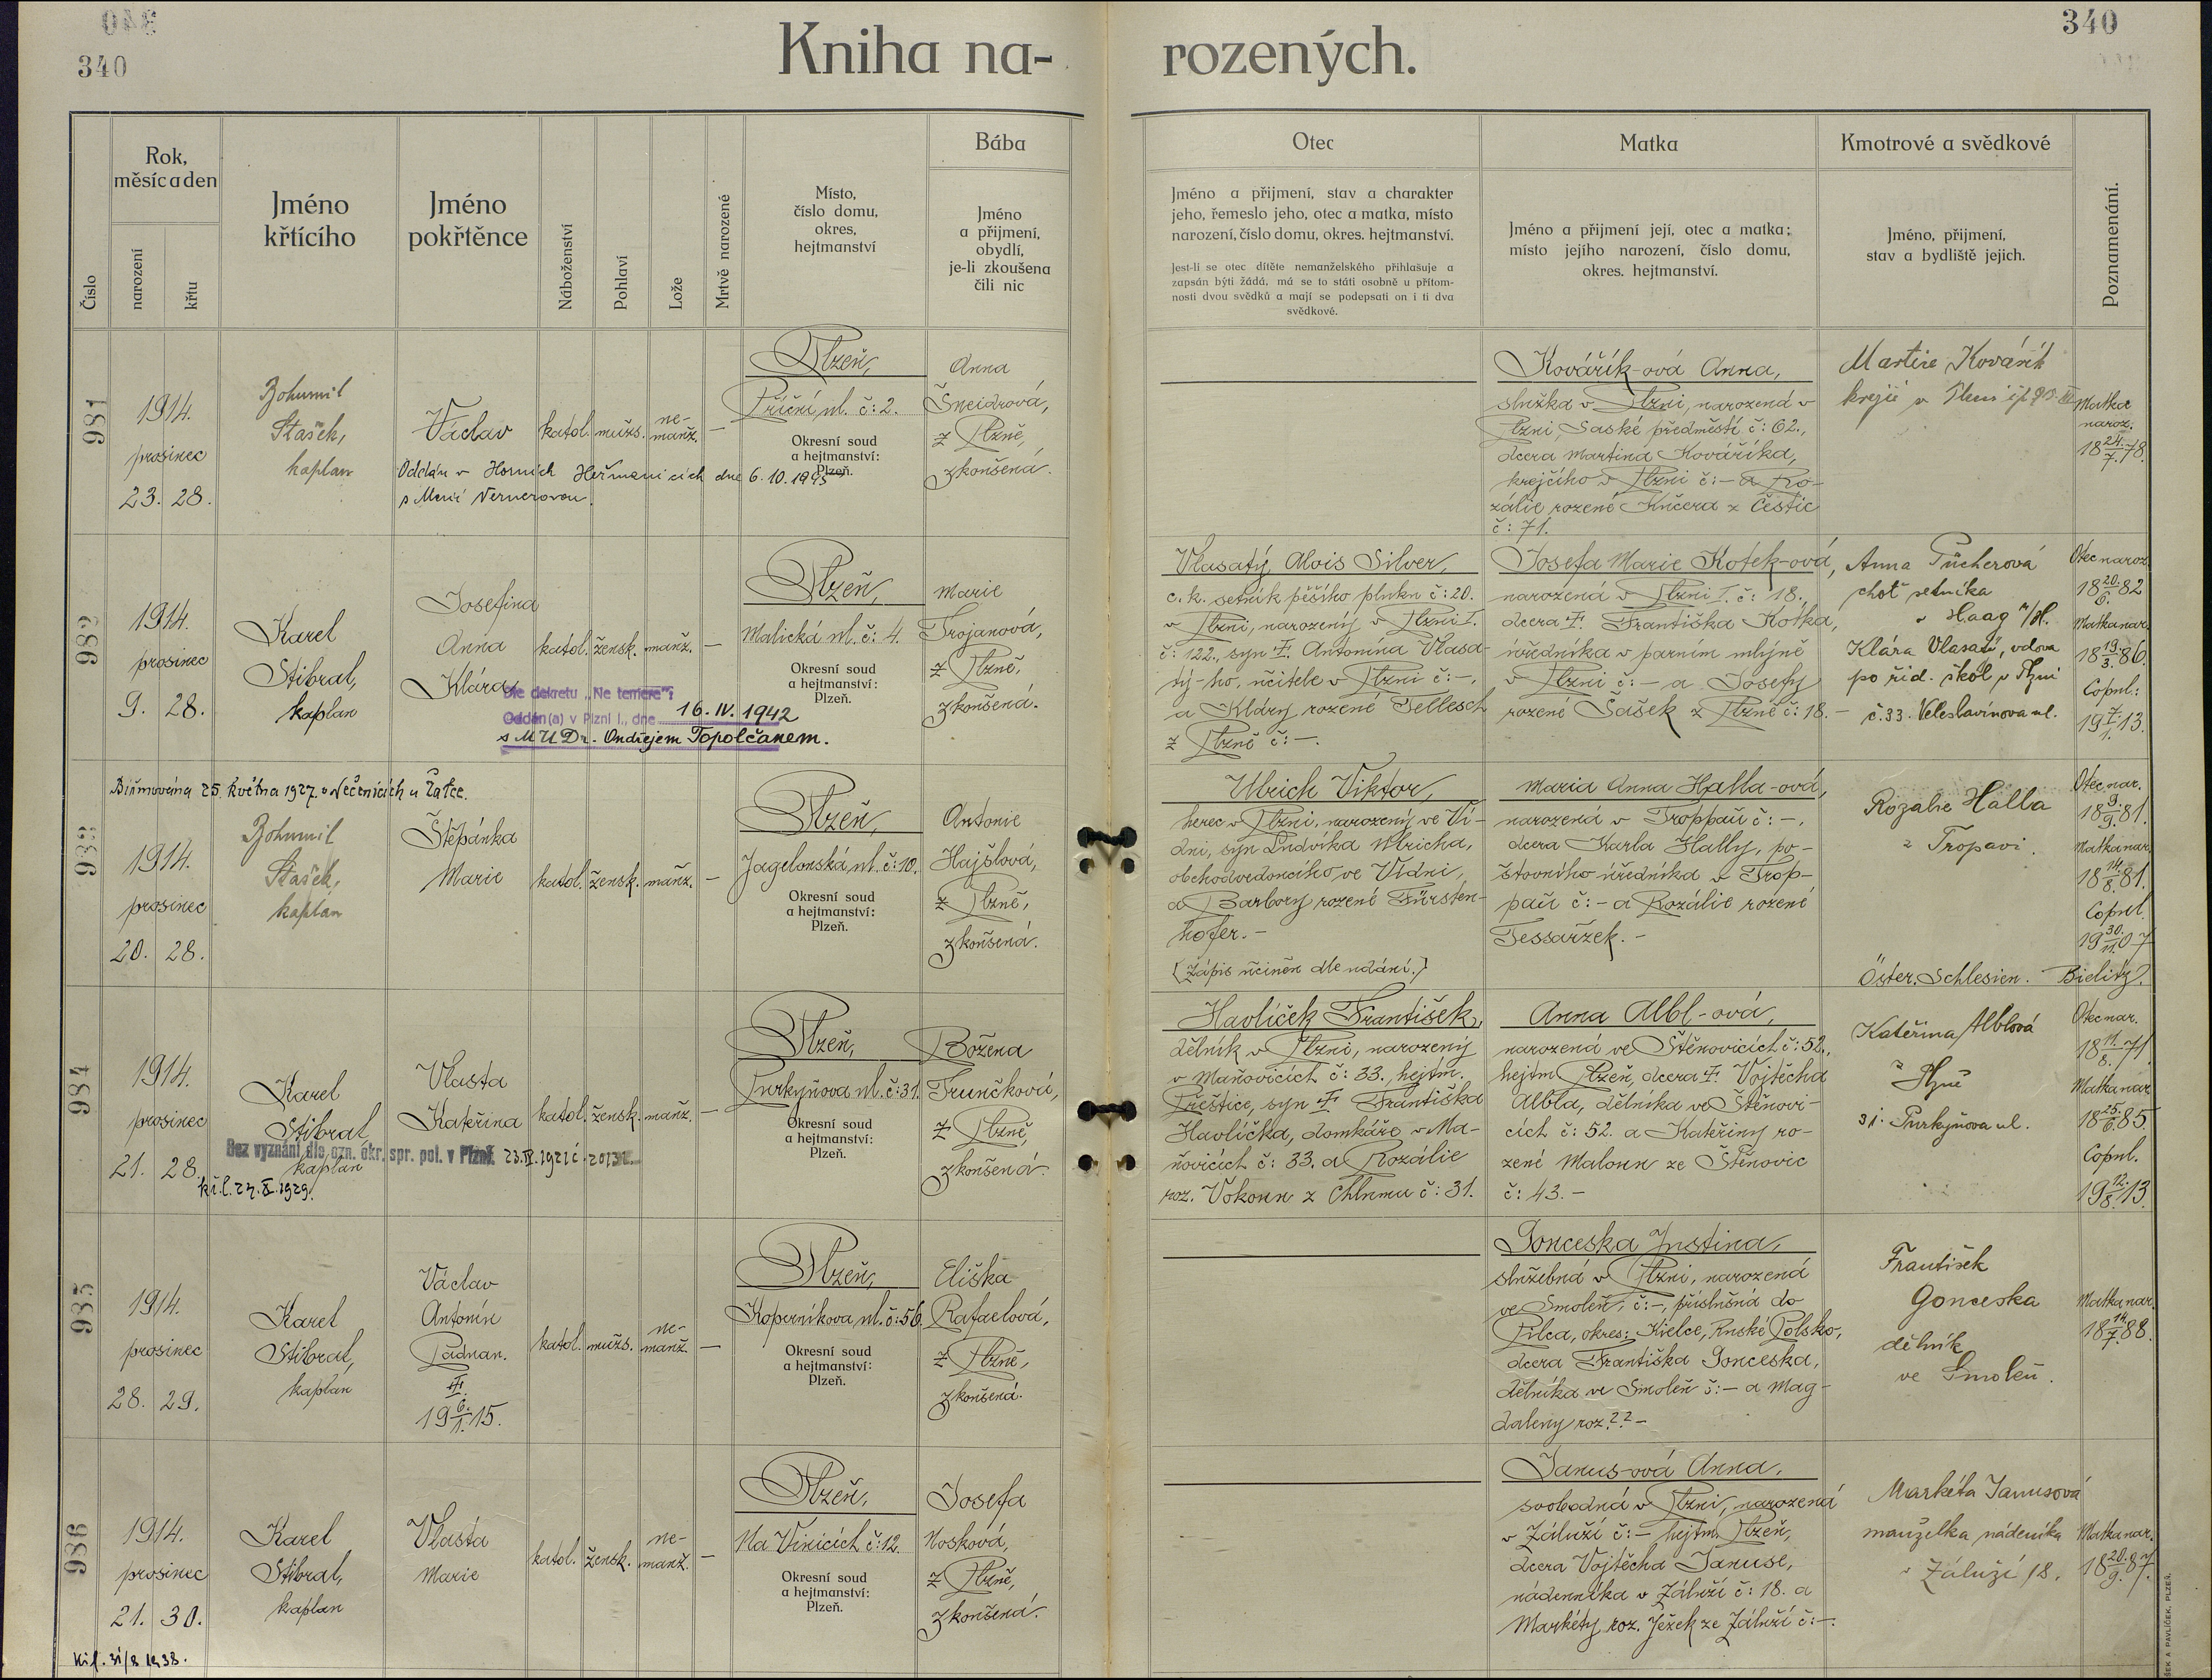 340
Kniha na-
rozených.
340
Číslo
Rok,
měsíc a den
narození
křtu
Jméno
křtícího
Jméno
pokřtěnce
Náboženství
Pohlaví
Lože
Mrtvě narozené
Místo,
číslo domu,
okres,
hejtmanství
Bába
Jméno
a přijmení,
obydlí,
je-li zkoušena
čili nic
Otec
Jméno a přijmení, stav a charakter
jeho, řemeslo jeho, otec a matka, místo
narození, číslo domu, okres. hejtmanství.
Jest-li se otec dítěte nemanželského přihlašuje a
zapsán býti žádá, má se to státi osobně u přítom-
nosti dvou svědků a mají se podepsati on i ti dva
svědkové.
Matka
Jméno a přijmení její, otec a matka;
místo jejího narození, číslo domu,
okres. hejtmanství.
Kmotrové a svědkové
Jméno, přijmení,
stav a bydliště jejich.
Poznamenání.
981
1914.
prosinec
23. 28.
Bohumil
Stašek,
kaplan
Václav
Oddán v Horních Heřmanicích dne 6. 10. 1945
s Marií Vernerovou.
katol.
mužs.
ne-
manž.
—
Plzeň,
Příční ul. č: 2.
Okresní soud
a hejtmanství:
Plzeň.
Anna
Šneidrová,
z Plzně,
zkoušená.
Kovářík-ová Anna,
služka v Plzni, narozená v
Plzni, Saské předměstí č: 62.,
dcera Martina Kováříka,
krejčího v Plzni č:– a Ro-
zálie rozené Kučera z Čestic
č: 71.
Martin Kovářík
krejčí v Plzni
Matka
naroz.
18 24./7. 78.
982
1914.
prosinec
9. 28.
Karel
Stibral,
kaplan
Josefina
Anna
Klára
Dle dekretu „Ne temere":
Oddán(a) v Plzni I., dne 16. IV. 1942
s MUDr. Ondřejem Topolčanem.
katol.
žensk.
manž.
—
Plzeň,
Malická ul. č: 4.
Okresní soud
a hejtmanství:
Plzeň.
Marie
Trojanová,
z Plzně,
zkoušená.
Vlasatý Alois Silver,
c. k. setník pěšího pluku č: 20.
v Plzni, narozený v Plzni I.
č: 122., syn † Antonína Vlasa-
tý-ho, učitele v Plzni č:–,
a Kláry rozené Tellesch
z Plzně č:–.
Josefa Marie Kotek-ová,
narozená v Plzni I. č: 18.,
dcera † Františka Kotka,
úředníka v parním mlýně
v Plzni č:– a Josefy
rozené Šašek z Plzně č: 18. –
Anna Pücherová
choť setníka
v Haag n/H.
Klára Vlasatá, vdova
po říd. škol v Plzni
č. 33. Veleslavínova ul.
Otec naroz.
18 20./6. 82
Matka nar.
18 19./3. 86.
Copul.:
19 7./1. 13.
983
Biřmována 25. května 1927 v Nečenicích u Žatce.
1914.
prosinec
20. 28.
Bohumil
Stašek,
kaplan
Štěpánka
Marie
katol.
žensk.
manž.
—
Plzeň,
Jagelonská ul. č: 10.
Okresní soud
a hejtmanství:
Plzeň.
Antonie
Hajšlová,
z Plzně,
zkoušená.
Ulrich Viktor,
herec v Plzni, narozený ve Ví-
dni, syn Ludvíka Ulricha,
obchodvedoucího ve Vídni,
a Barbory rozené Fürsten-
hofer. –
[Zápis učiněn dle udání.]
Maria Anna Halla-ová,
narozená v Troppau č:–,
dcera Karla Hally, po-
štovního úředníka v Trop-
pau č:– a Rozálie rozené
Tessařzek. –
Rozalie Halla
z Tropavi.
Otec nar.
18 9./9. 81.
Matka nar.
18 14./8. 81.
Copul.
19 30./11. 07
Öster. Schlesien. Bielitz.
984
1914.
prosinec
21. 28.
Karel
Stibral
kaplan
Bez vyznání dle ozn. okr. spr. pol. v Plzni.
Vlasta
Kateřina
katol.
žensk.
manž.
—
Plzeň,
Purkyňova ul. č: 31.
Okresní soud
a hejtmanství:
Plzeň.
Božena
Trunčková,
z Plzně,
zkoušená.
Havlíček František,
dělník v Plzni, narozený
v Maňovicích č: 33., hejtm.
Přeštice, syn † Františka
Havlíčka, domkáře v Ma-
ňovicích č: 33. a Rozálie
roz. Vokoun z Chlumu č: 31.
Anna Albl-ová,
narozená ve Štěnovicích č: 52.,
hejtm. Plzeň, dcera † Vojtěcha
Albla, dělníka ve Štěnovi-
cích č: 52. a Kateřiny ro-
zené Maloun ze Štěnovic
č: 43. –
Kateřina Alblová
z Plzně
31. Purkyňova ul.
Otec nar.
18 11./8. 71.
Matka nar.
18 25./6. 85.
Copul.
19 12./8. 13.
985
1914.
prosinec
28. 29.
Karel
Stibral,
kaplan
Václav
Antonín
Paduan.
†
19 6./1. 15.
katol.
mužs.
ne-
manž.
—
Plzeň,
Koperníkova ul. č: 56.
Okresní soud
a hejtmanství:
Plzeň.
Eliška
Rafaelová,
z Plzně,
zkoušená.
Gonceska Justina,
služebná v Plzni, narozená
ve Smoleň, č:–, příslušná do
Pilca, okres: Kielce, Ruské Polsko,
dcera Františka Gonceska,
dělníka ve Smoleň č:– a Mag-
daleny roz. ?? –
František
Gonceska
dělník
ve Smoleň.
Matka nar.
18 14./7. 88.
986
1914.
prosinec
21. 30.
Karel
Stibral,
kaplan
Vlasta
Marie
katol.
žensk.
ne-
manž.
—
Plzeň,
Na Vinicích č: 12.
Okresní soud
a hejtmanství:
Plzeň.
Josefa
Nosková,
z Plzně,
zkoušená.
Janus-ová Anna,
svobodná v Plzni, narozená
v Záluží č:– hejtm. Plzeň,
dcera Vojtěcha Januse,
nádenníka v Záluží č: 18. a
Markéty roz. Ježek ze Záluží č:–.
Markéta Janusová
manželka nádeníka
v Záluží 18.
Matka nar.
18 20./9. 87.